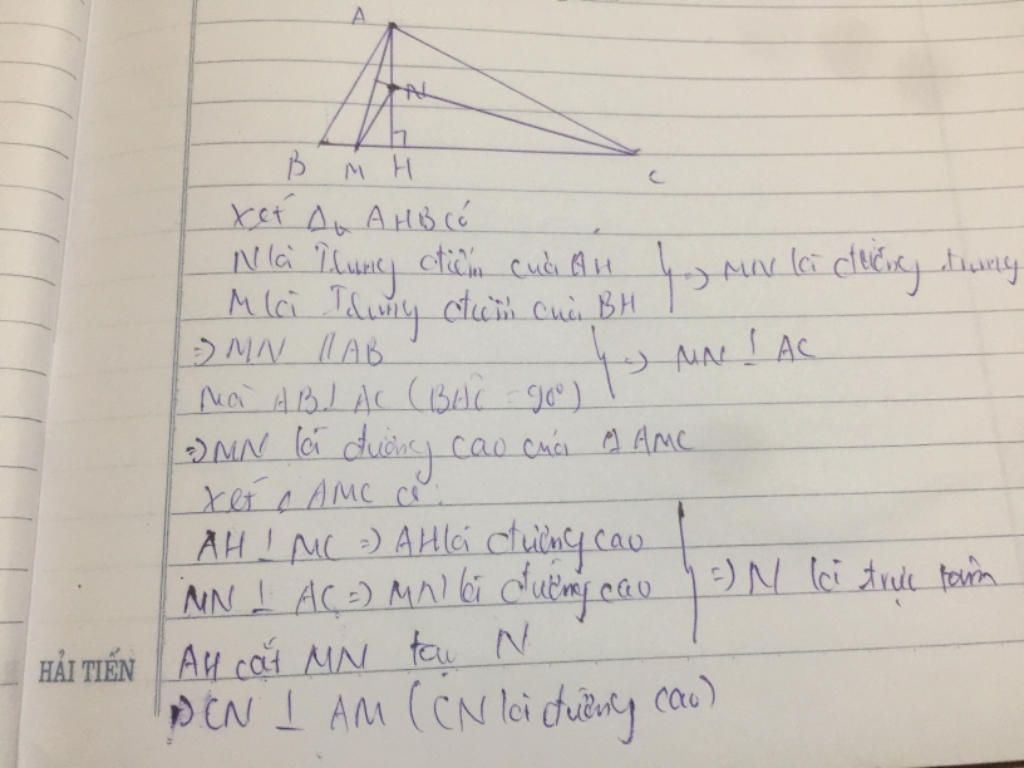 A
N
B M H C
Xét Δv AHB có
N là Trung điểm của AH } => MN là đường trung
M là Trung điểm của BH
=> MN // AB } => MN ⊥ AC
Mà AB ⊥ AC (BAC = 90°)
=> MN là đường cao của Δ AMC
Xét Δ AMC có:
AH ⊥ MC => AH là đường cao
MN ⊥ AC => MN là đường cao } => N là trực tâm
AH cắt MN tại N
HẢI TIẾN
=> CN ⊥ AM (CN là đường cao)